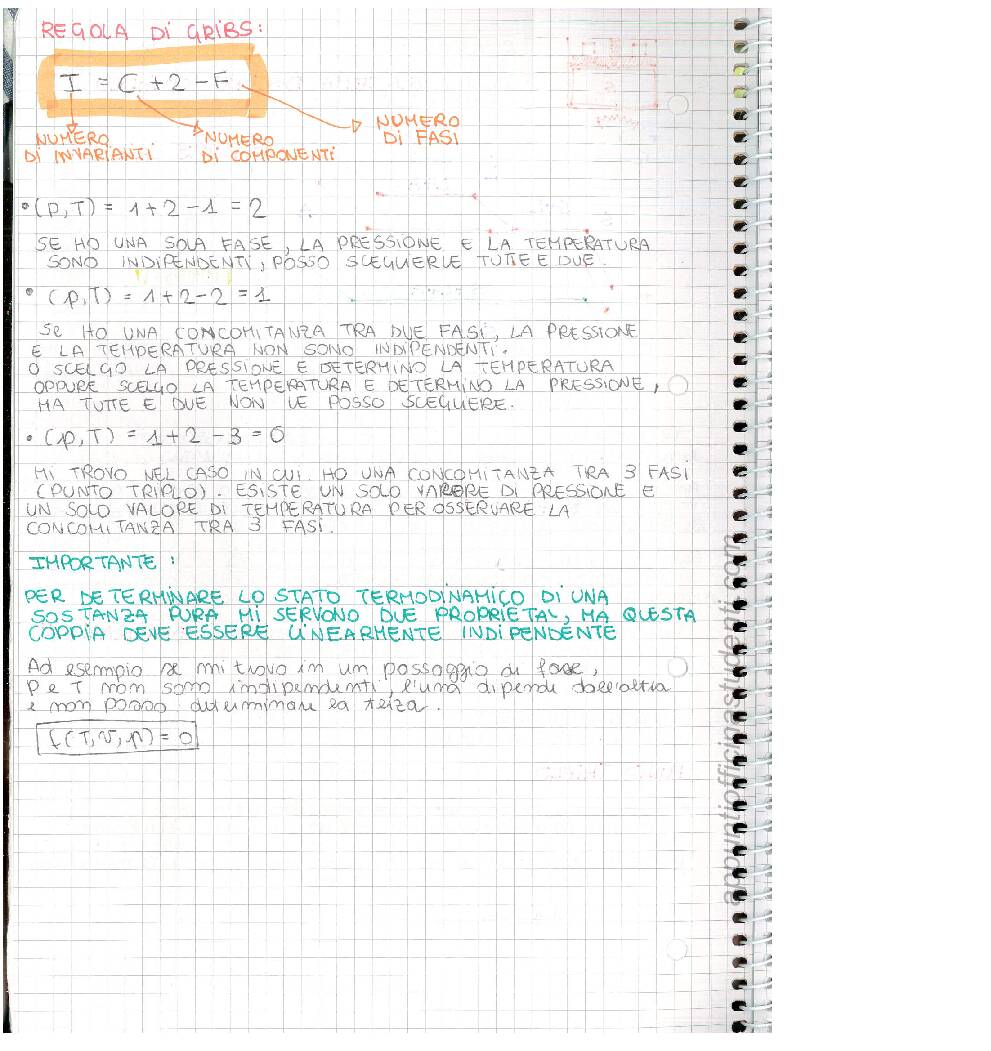 REGOLA DI GRIBS:
I = C + 2 - F
NUMERO DI INVARIANTI
NUMERO DI COMPONENTI
NUMERO DI FASI
• (P,T) = 1+2-1 = 2
SE HO UNA SOLA FASE, LA PRESSIONE E LA TEMPERATURA
SONO INDIPENDENTI, POSSO SCEGLIERLE TUTTE E DUE.
• (p,T) = 1+2-2 = 1
SE HO UNA CONCOMITANZA TRA DUE FASI, LA PRESSIONE
E LA TEMPERATURA NON SONO INDIPENDENTI.
O SCELGO LA PRESSIONE E DETERMINO LA TEMPERATURA
OPPURE SCELGO LA TEMPERATURA E DETERMINO LA PRESSIONE,
MA TUTTE E DUE NON LE POSSO SCEGLIERE.
• (p,T) = 1+2-3 = 0
MI TROVO NEL CASO IN CUI HO UNA CONCOMITANZA TRA 3 FASI
(PUNTO TRIPLO). ESISTE UN SOLO VALORE DI PRESSIONE E
UN SOLO VALORE DI TEMPERATURA PER OSSERVARE LA
CONCOMITANZA TRA 3 FASI.
IMPORTANTE:
PER DETERMINARE LO STATO TERMODINAMICO DI UNA
SOSTANZA PURA MI SERVONO DUE PROPRIETA', MA QUESTA
COPPIA DEVE ESSERE LINEARMENTE INDIPENDENTE
Ad esempio se mi trovo in un passaggio di fase,
P e T non sono indipendenti, l'una dipende dall'altra
e non posso determinare la terza.
f(T,v,p) = 0
appuntiofficinastudenti.com